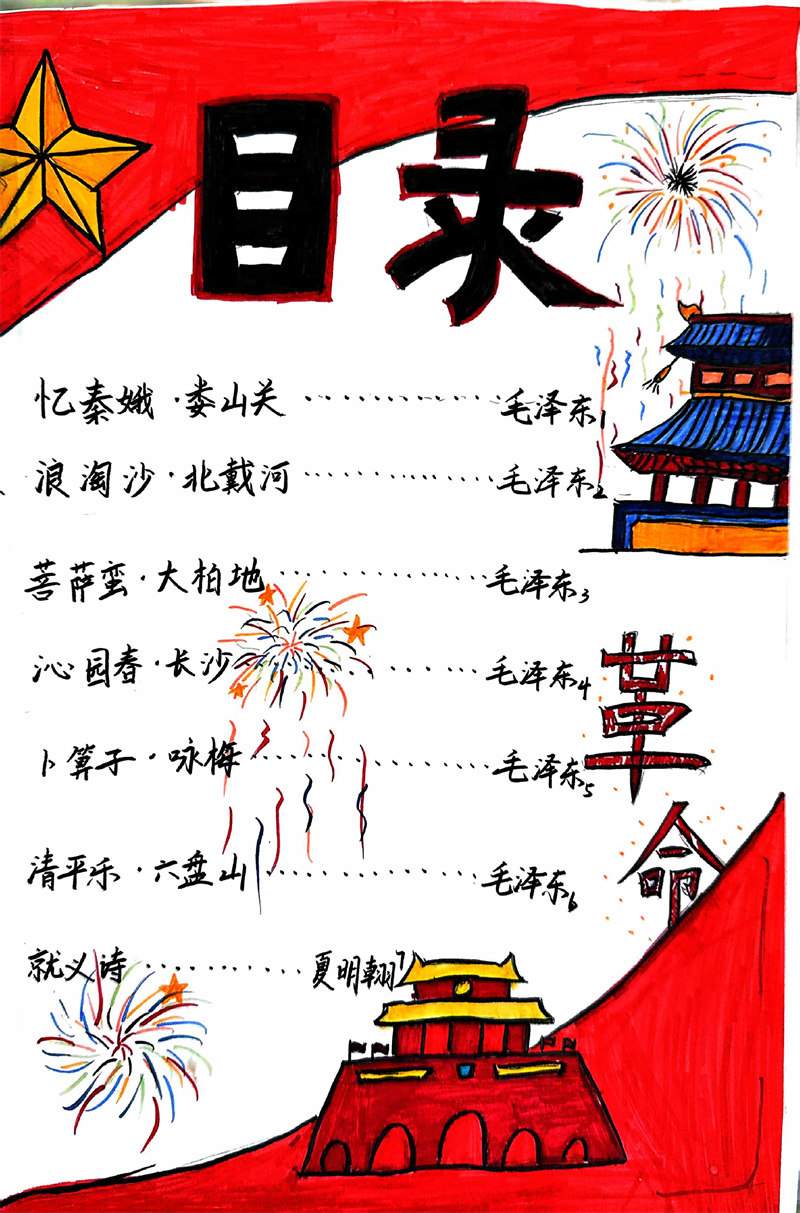 目录
忆秦娥·娄山关············毛泽东1
浪淘沙·北戴河············毛泽东2
菩萨蛮·大柏地············毛泽东3
沁园春·长沙············毛泽东4
卜算子·咏梅············毛泽东5
清平乐·六盘山············毛泽东6
就义诗············夏明翰7
革命